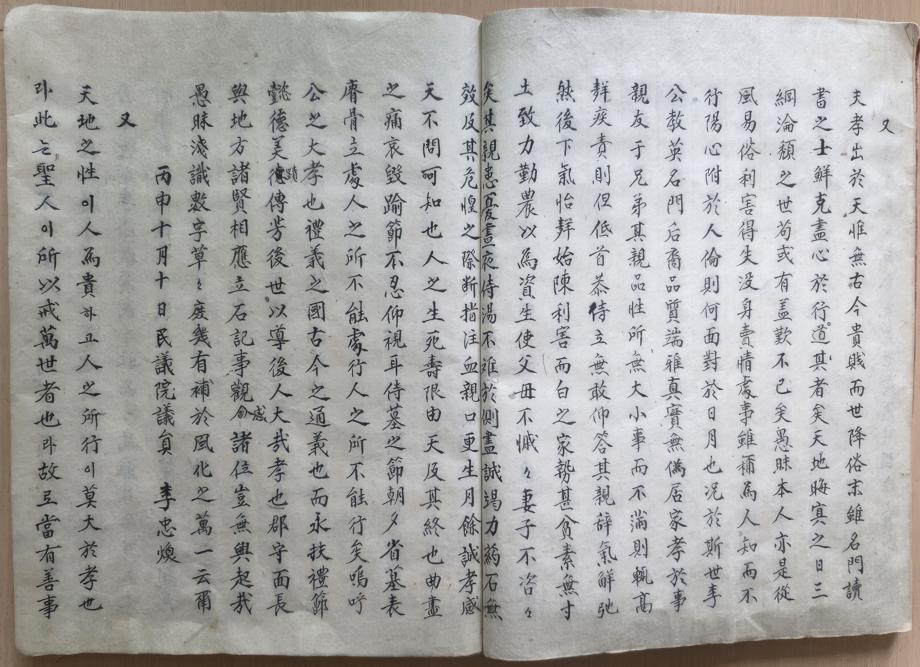 又
夫孝出於天惟無古今貴賤而世降俗末雖名門讀
書之士鮮克盡心於行道其者矣天地晦冥之日三
綱淪頹之世苟或有盖歎不已矣愚昧本人亦是從
風易俗利害得失沒身賣情處事雖稱為人知而不
行陽心附於人倫則何面對於日月也况於斯世李
公教英名門后裔品質端雅真實無僞居家孝於事
親友于兄弟其親品性所無大小事而不滿則輒高
聲疾責則但低首恭侍立無敢仰答其親辭氣鮮弛
然後下氣怡聲始陳利害而白之家勢甚貧素無寸
土致力勤農以為資生使父母不憾々妻子不咨々
矣其親患憂晝夜侍湯不離於側盡誠竭力藥石無
效及其危惶之際斷指注血親口更生月餘誠孝感
天不問可知也人之生死壽限由天及其終也曲盡
之痛哀毀踰節不忍仰視耳侍墓之節朝夕省墓表
膚骨立處人之所不能處行人之所不能行矣嗚呼
公之大孝也禮義之國古今之通義也而永扶禮節
懿德美德傳芳後世以導後人大哉孝也郡守面長
與地方諸賢相應立石記事觀感諸位豈無興起哉
愚昧淺識數字草々庶幾有補於風化之萬一云爾
丙申十月十日民議院議員 李忠煥
又
天地之性이人為貴하고人之所行이莫大於孝也
라此는聖人이所以戒萬世者也라故로當有善事